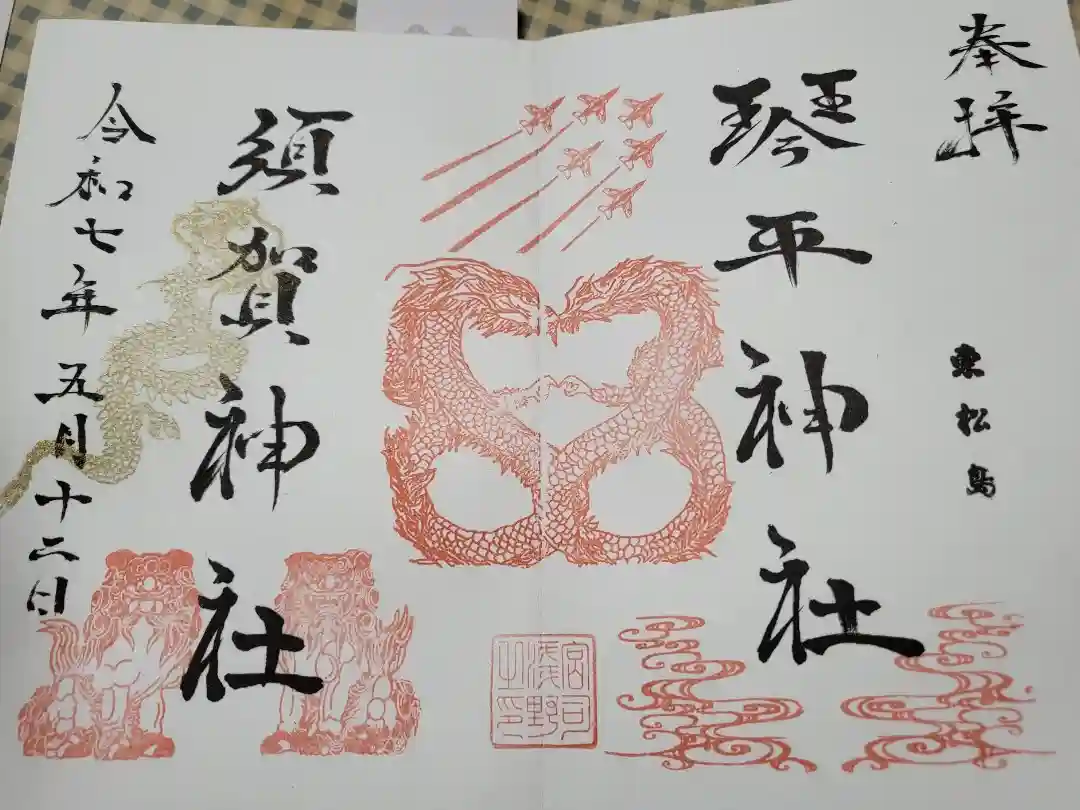 奉拝
東松島
琴平神社
須賀神社
令和七年五月十二日
宮司
浅野
之印